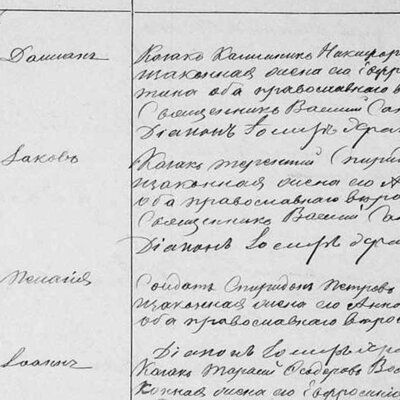 Дамианъ
Козакъ Калинникъ Никифор
и законная жена его Евфро
сина оба православнаго в
Священникъ Василій Са
Діаконъ
Іаковъ
Козакъ Терентій Спирид
и законная жена его А
оба православнаго въро
Священникъ Василій Са
Діаконъ
Пелагія
Солдатъ Спиридонъ Петровъ
и законная жена его Анна
оба православнаго вѣрои
Діаконъ
Іоаннъ
Козакъ Тарасій Ѳеодоровъ Во
конная жена его Евфросинія